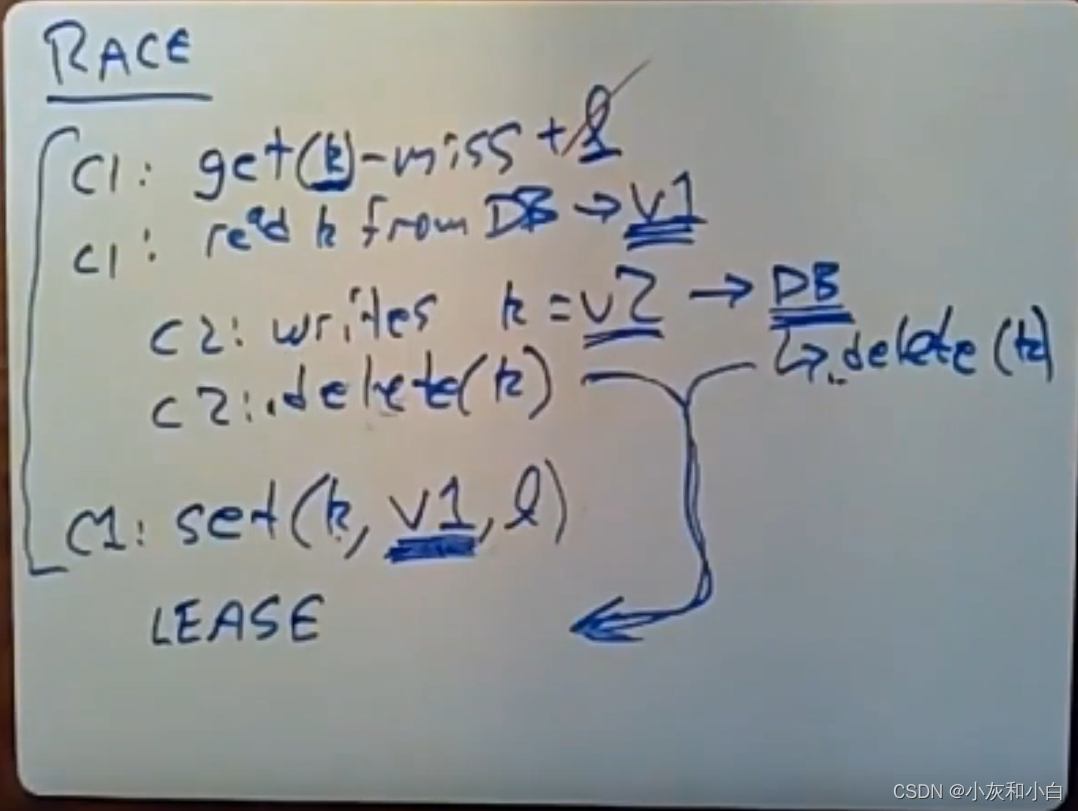 RACE
C1: get(k)-miss + l
C1: read k from DB → v1
C2: writes k = v2 → DB
↳.delete(k)
C2:.delete(k)
C1: set(k, v1, l)
LEASE
CSDN @小灰和小白